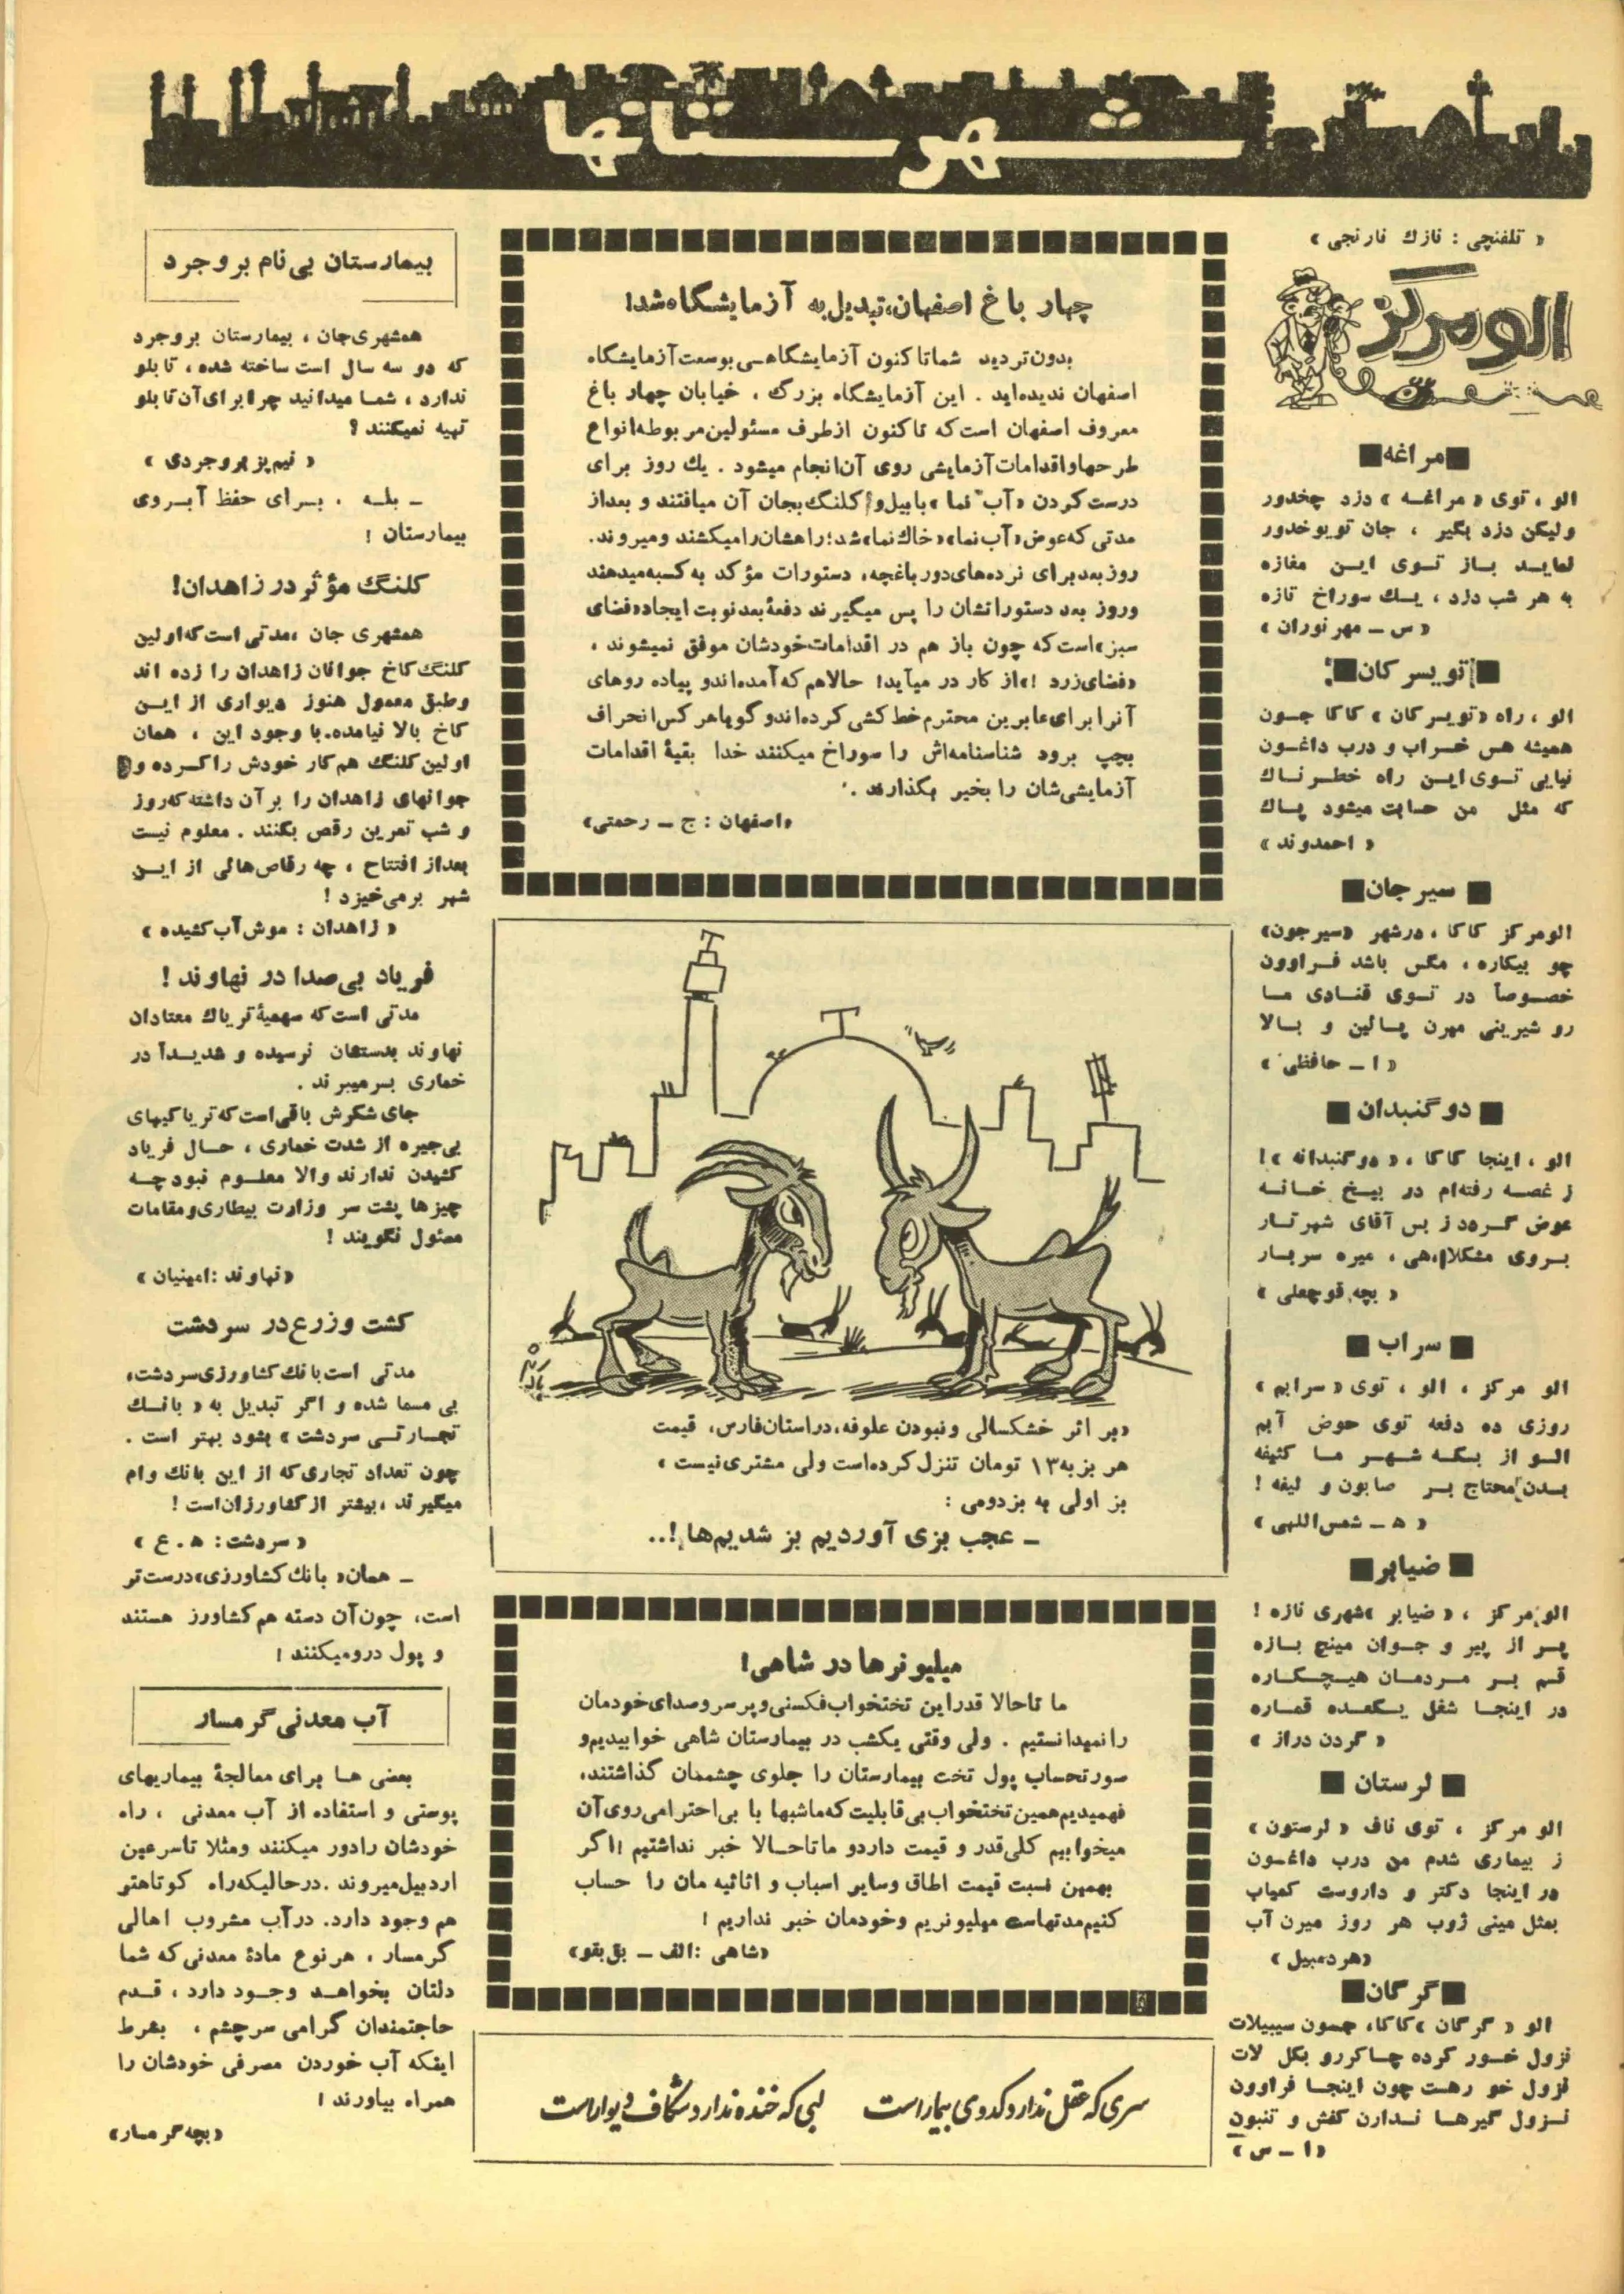 شهرستانها
« تلفنچی : نازك نارنجی »
الو مرکز
مراغه
الو ، توی « مراغه » دزد چخدور
ولیکن دزد بگیر ، جان تو یوخدور
لماید باز توی این مغازه
به هر شب دزد ، یك سوراخ تازه
« س ـ مهر نوران »
تویسرکان
الو ، راه «تویسرکان» کاکا جون
همیشه هس خراب و درب داغون
نیایی توی این راه خطرناك
که مثل من حسابت میشود پاك
« احمدوند »
سیرجان
الومرکز کاکا ، درشهر «سیرجون»
چو بیکاره ، مگس باشد فراوون
خصوصاً در توی قنادی ما
رو شیرینی میرن پائین و بالا
« ا ـ حافظی »
دوگنبدان
الو ، اینجا کاکا ، « دوگنبدانه »!
ز غصه رفته‌ام در بیخ خانه
عوض گردد ز بس آقای شهردار
بروی مشکلاهی ، میره سربار
« بچه قوچعلی »
سراب
الو مرکز ، الو ، توی « سرابم »
روزی ده دفعه توی حوض آبم
الو از بسکه شهر ما کثیفه
بدن محتاج بر صابون و لیفه !
« ه ـ شمس‌اللهی »
ضیابر
الو مرکز ، « ضیابر » شهری نازه !
پر از پیر و جوان مینج بازه
قسم بر مردمان هیچکاره
در اینجا شغل یکعده قماره
« گردن دراز »
لرستان
الو مرکز ، توی ناف « لرستون »
ز بیماری شدم من درب داغون
در اینجا دکتر و داروست کمیاب
بمثل مینی ژوب هر روز میرن آب
«هردمبیل »
گرگان
الو « گرگان » کاکا، چمون سیبیلات
نزول خور کرده چاکررو بکل لات
نزول خو رهست چون اینجا فراوون
نزول گیرها ندارن کفش و تنبون
« ا ـ س »
چهار باغ اصفهان، تبدیل به آزمایشگاه شد!
بدون تردید شما تاکنون آزمایشگاهی بوسعت آزمایشگاه
اصفهان ندیده‌اید . این آزمایشگاه بزرگ ، خیابان چهار باغ
معروف اصفهان است که تاکنون ازطرف مسئولین مربوطه انواع
طرحها و اقدامات آزمایشی روی آن انجام میشود . یك روز برای
درست کردن «آب نما » با بیل و کلنگ بجان آن میافتند و بعداز
مدتی که عوض «آب نما» «خاك نما» شد؛ راهشان را میکشند و میروند.
روز بعد برای نرده‌های دور باغچه، دستورات مؤکد به کسبه میدهند
و روز بعد دستوراتشان را پس میگیرند دفعهٔ بعد نوبت ایجاد «فضای
سبز» است که چون باز هم در اقدامات خودشان موفق نمیشوند ،
«فضای زرد !» از کار در میآید! حالا هم که آمده‌اند و پیاده روهای
آنرا برای عابرین محترم خط کشی کرده‌اند و گویا هر کس انحراف
بچپ برود شناسنامه‌اش را سوراخ میکنند خدا بقیهٔ اقدامات
آزمایشی‌شان را بخیر بگذاراند .
«اصفهان : ج ـ رحمتی»
«بر اثر خشکسالی و نبودن علوفه، در استان فارس، قیمت
هر بز به ۱۳ تومان تنزل کرده‌است ولی مشتری نیست »
بز اولی به بز دومی :
ـ عجب بزی آوردیم بز شدیم‌ها !..
میلیونرها در شاهی!
ما تاحالا قدر این تختخواب فکسنی و پر سروصدای خودمان
را نمیدانستیم . ولی وقتی یکشب در بیمارستان شاهی خوابیدیم و
صورتحساب پول تخت بیمارستان را جلوی چشممان گذاشتند،
فهمیدیم همین تختخواب بی‌قابلیت که ما شبها با بی‌احترامی روی آن
میخوابیم کلی قدر و قیمت دارد و ما تاحالا خبر نداشتیم ! اگر
بهمین نسبت قیمت اطاق و سایر اسباب و اثاثیه مان را حساب
کنیم مدتهاست میلیونریم و خودمان خبر نداریم !
«شاهی : الف ـ بق‌بقو»
سری که عقل ندارد کدوی بیمار است      لبی که خنده ندارد شکاف دیوار است
بیمارستان بی‌نام بروجرد
همشهری جان ، بیمارستان بروجرد
که دو سه سال است ساخته شده ، تابلو
ندارد ، شما میدانید چرا برای آن تابلو
تهیه نمیکنند ؟
« نیم‌پز بروجردی »
ـ بله . برای حفظ آبروی
بیمارستان !
کلنگ مؤثر در زاهدان!
همشهری جان ، مدتی است که اولین
کلنگ کاخ جوانان زاهدان را زده اند
و طبق معمول هنوز دیواری از این
کاخ بالا نیامده. با وجود این ، همان
اولین کلنگ هم کار خودش را کرده و
جوانهای زاهدان را بر آن داشته که روز
و شب تمرین رقص بکنند . معلوم نیست
بعداز افتتاح ، چه رقاص‌هائی از این
شهر برمی‌خیزد !
« زاهدان : موش آب کشیده »
فریاد بی‌صدا در نهاوند !
مدتی است که سهمیهٔ تریاك معتادان
نهاوند بدستشان نرسیده و شدیداً در
خماری بسرمیبرند .
جای شکرش باقی است که تریاکیهای
بی‌جیره از شدت خماری ، حال فریاد
کشیدن ندارند والا معلوم نبود چه
چیزها پشت سر وزارت بیطاری و مقامات
مسئول نگویند !
«نهاوند : امینیان »
کشت و زرع در سردشت
مدتی است بانك کشاورزی سردشت،
بی مسما شده و اگر تبدیل به « بانك
تجارتی سردشت » بشود بهتر است .
چون تعداد تجاری که از این بانك وام
میگیرند ، بیشتر از کشاورزان است !
« سردشت : ه . ع »
ـ همان « بانك کشاورزی» درست تر
است، چون آن دسته هم کشاورز هستند
و پول درو میکنند !
آب معدنی گرمسار
بعضی ها برای معالجهٔ بیماریهای
پوستی و استفاده از آب معدنی ، راه
خودشان را دور میکنند و مثلا تا سرعین
اردبیل میروند . در حالیکه راه کوتاهتر
هم وجود دارد. در آب مشروب اهالی
گرمسار ، هر نوع مادهٔ معدنی که شما
دلتان بخواهد وجود دارد ، قدم
حاجتمندان گرامی سرچشم ، بشرط
اینکه آب خوردن مصرفی خودشان را
همراه بیاورند !
«بچه گرمسار»